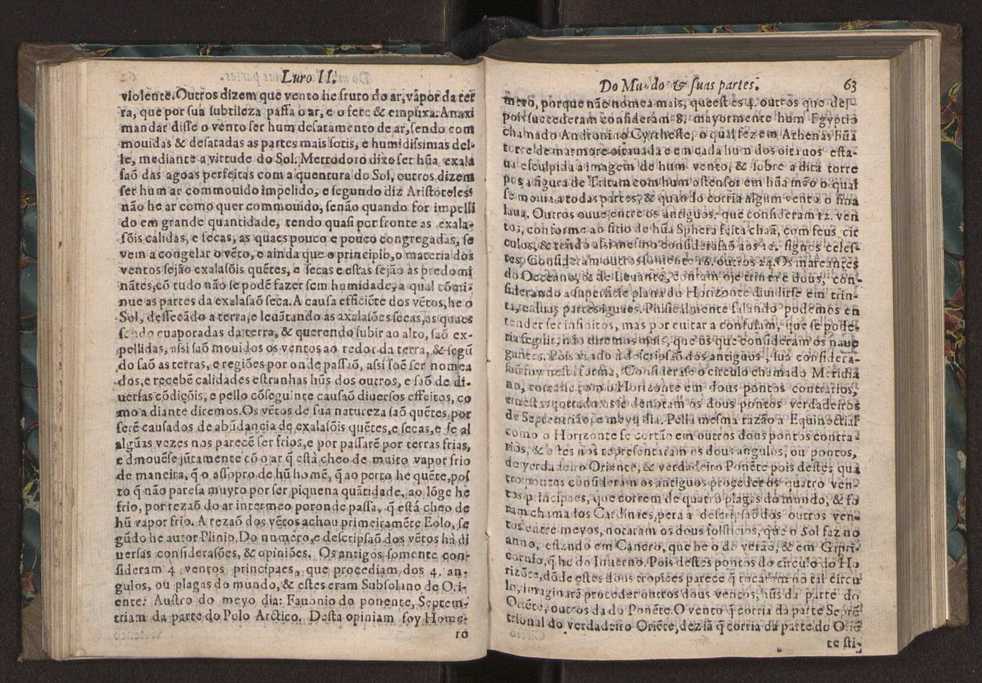 Livro II.
violente. Outros dizem que vento he fruto do ar, vapor da ter
ra, que por sua subtileza passa o ar, e o fere & empuxa: Anaxi
mandar disse o vento ser hum desatamento de ar, sendo com
mouidas & desatadas as partes mais sotis, e humidissimas del-
le, mediante a virtude do Sol. Metrodoro dixo ser hũa exala
saõ das agoas perfeitas com a quentura do Sol, outros dizem
ser hum ar commouido impelido, e segundo diz Aristoteles
não he ar como quer commouido, senão quando for impelli
do em grande quantidade, tendo quasi por fronte as exala-
sõis calidas, e secas, as quaes pouco e pouco congregadas, se
vem a congelar o vẽto, e ainda que o principio, o materia dos
ventos sejão exalasõis quẽtes, e secas e estas sejão as predomi
nãtes, cõ tudo não se podẽ fazer sem humidade, a qual cõti-
nue as partes da exalasaõ seca. A causa efficiẽte dos vẽtos, he o
Sol, dessecãdo a terra, e leuãtando as axalasões secas, as quaes
sendo euaporadas da terra, & querendo subir ao alto, saõ ex-
pellidas, assi saõ mouidos os ventos ao redor da terra, & segũ
do saõ as terras, e regiões por onde passaõ, assi soẽ ser nomea
dos, e recebẽ calidades estranhas hũs dos outros, e saõ de di-
uersas cõdiçõis, e pello cõseguinte causaõ diuersos effeitos, co
mo a diante diremos. Os vẽtos de sua natureza saõ quẽtes, por
serẽ causados de abũdancia de exalasõis quẽtes, e secas, e se al
algũas vezes nos parecẽ ser frios, e por passarẽ por terras frias,
e dmouẽse jũtamente cõ o ar q̃ està cheo de muito vapor frio
de maneira, q̃ o assopro de hũ homẽ, q̃ ao perto he quẽte, pos
to q̃ não paresa muyto por ser piquena quãtidade, ao lõge he
frio, por rezaõ do ar intermeo por onde passa, q̃ està cheo de
hũ vapor frio. A rezaõ dos vẽtos achou primeiramẽte Eolo, se
gũdo he autor Plinio. Do numero, e descripsaõ dos vẽtos hà di
uersas considerasões, & opiniões. Os antigos somente con-
sideram 4. ventos principaes, que procediam dos 4. an-
gulos, ou plagas do mundo, & estes eram Subsolano de Ori-
ente: Austro do meyo dia: Fauonio do ponente, Septem-
triam da parte do Polo Arctico. Desta opiniam foy Home-
ro
Do Mundo & suas partes.
63
mero, porque não nomea mais, que estes 4. outros que de-
pois sucederam consideràm 8. mayormente hum Egyptio
chamado Andronico Cyrrheste, o qual fez em Athenas hũa
torre de marmore oitauada e em cada hum dos oitauos esta-
ua esculpida a imagem de hum vento, & sobre a dita torre
pos a figura de Tritam com hum ostensor em hũa mão o qual
se mouia a todas partes, & quando corria algum vento o sina
laua. Outros ouue entre os antiguos, que consideram 12. ven
tos, conforme ao sitio de hũa Sphera feita chaã, com seus cir
culos, & tendo assi mesmo considerasaõ aos 12. signos celes-
tes, Consideram outros somente 16. outros 24. Os mareantes
do Oceano, & de Leuante, contam oje trinta e dous, con-
siderando a superficie plana do Horizonte diuidirse em trin-
ta, e duas partes iguaes. Phisicalmente falando podemos en
tender ser infinitos, mas por euitar a confusam, que se pode-
ria seguir, não diremos mais, que os que consideram os naue
gantes. Pois vindo a descripsaõ dos antiguos, sua considera-
saõ foy nesta forma, Considerase o circulo chamado Meridia
no, cortarse com o Horizonte em dous pontos contrarios,
denotam os dous pontos verdadeiros
de Septentrião, e meyo dia. Pella mesma razão a Equinoctial
como o Horizonte se cortão em outros dous pontos contra-
rios, & estes nos representaram os dous angulos, ou pontos,
de verdadeiro Oriente, & verdadeiro Ponẽte pois destes qua
tro pontos consideram os antiguos proceder os quatro ven-
tos principaes, que correm de quatro plagas do mundo, & fo
ram chamados Cardines, pera a descripsaõ dos outros ven-
tos entre meyos, notaram os dous solsticios, que o Sol faz no
anno, estando em Cancro, que he o de verão, & em Capri-
cornio, q̃ he do Inuerno. Pois destes pontos do circulo do Ho
rizõte, dõde estes dous tropicos parece q̃ tocaram no tal circu
lo, imaginarà proceder outros dous ventos, hũs da parte do
Oriẽte, outros da do Ponẽte. O vento q̃ corria da parte Septẽ
trional do verdadeiro Oriẽte, dezià q̃ corria da parte do Oriẽ
te esti-